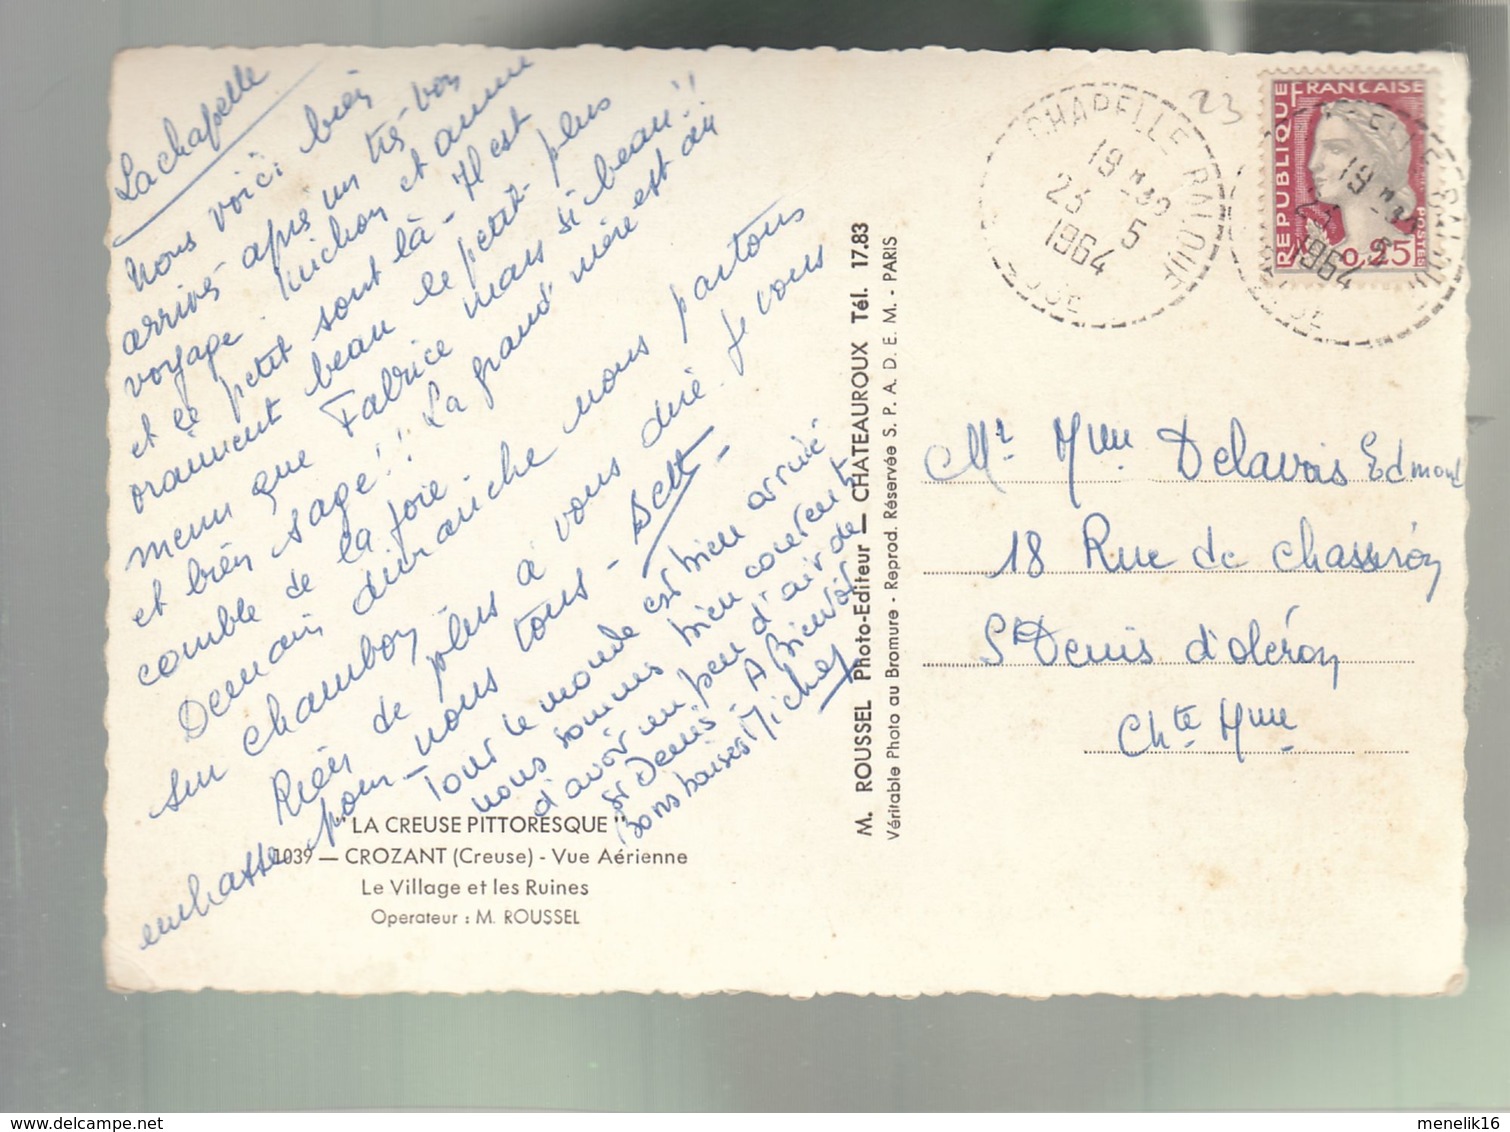 La chapelle
Nous voici bien
arrivés après un très bon
voyage. Michou et anne
et le petit sont là - Il est
vraiment beau le petit - plus
menu que Fabrice mais si beau!!
et bien sage!! La grand'mère est au
comble de la joie.
Demain dimanche nous partons
sur Chambon
Rien de plus à vous dire. Je vous
embrasse pour nous tous -
Tout le monde est bien arrivé
nous sommes bien contents
d'avoir un peu d'air de
St Denis - A Bientôt
Bons baisers Michel
" LA CREUSE PITTORESQUE "
1039 — CROZANT (Creuse) - Vue Aérienne
Le Village et les Ruines
Operateur : M. ROUSSEL
M. ROUSSEL Photo-Editeur — CHATEAUROUX Tél. 17.83
Véritable Photo au Bromure - Reprod. Réservée S. P. A. D. E. M. - PARIS
23
CHAPELLE
19 H 30
23 5
1964
CREUSE
REPUBLIQUE FRANÇAISE
POSTES
0,25
19 H 30
23 5
1964
Mr Mme Delavois Edmond
18 Rue de Chasseron
St Denis d'oléron
Chte Mme
menelik16
www.delcampe.net